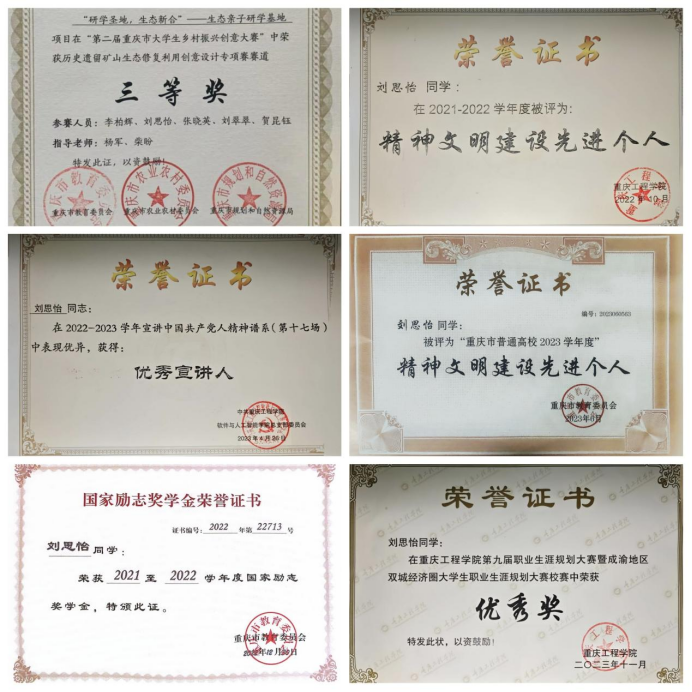 “研学圣地，生态新合”——生态亲子研学基地
项目在“第二届重庆市大学生乡村振兴创意大赛”中荣
获历史遗留矿山生态修复利用创意设计专项赛赛道
三等奖
参赛人员：李柏辉、刘思怡、张晓英、刘翠翠、贺昆钰
指导老师：杨军、柴盼
特发此证，以资鼓励！
重庆市教育委员会
重庆市农业农村委员会
重庆市规划和自然资源局
荣誉证书
刘思怡 同学：
在 2021-2022 学年度被评为：
精神文明建设先进个人
重庆工程学院
2022 年 10 月
荣誉证书
刘思怡 同志：
在 2022-2023 学年宣讲中国共产党人精神谱系（第十七场）
中表现优异，获得：
优秀宣讲人
中共重庆工程学院
软件与人工智能学院总支部委员会
2023 年 4 月 26 日
荣誉证书
编号：2023060563
刘思怡同学：
被评为“重庆市普通高校 2023 学年度”
精神文明建设先进个人
重庆市教育委员会
2023年6月
国家励志奖学金荣誉证书
证书编号：2022 年第 22713 号
刘思怡同学：
荣获 2021 至 2022 学年度国家励志
奖学金，特颁此证。
重庆市教育委员会
荣誉证书
刘思怡同学：
在重庆工程学院第九届职业生涯规划大赛暨成渝地区
双城经济圈大学生职业生涯规划大赛校赛中荣获
优秀奖
特发此状，以资鼓励！
重庆工程学院
二〇二三年十一月